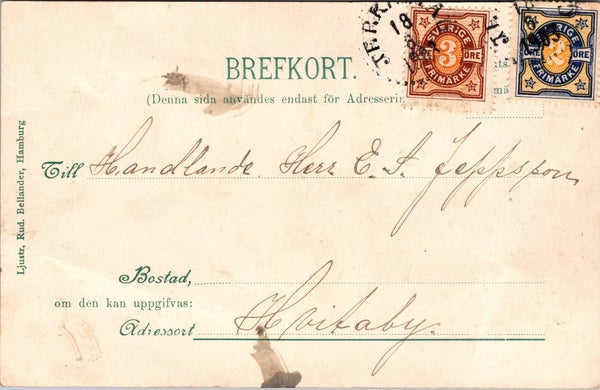 BREFKORT.
(Denna sida användes endast för Adresserin
SVERIGE
3 ÖRE
FRIMÄRKE
SVERIGE
2 ÖRE
FRIMÄRKE
18
Till Handlande Herr E. A. Jeppsson,
Bostad,
om den kan uppgifvas:
Adressort Hvitaby.
Ljustr, Rud. Bellander, Hamburg